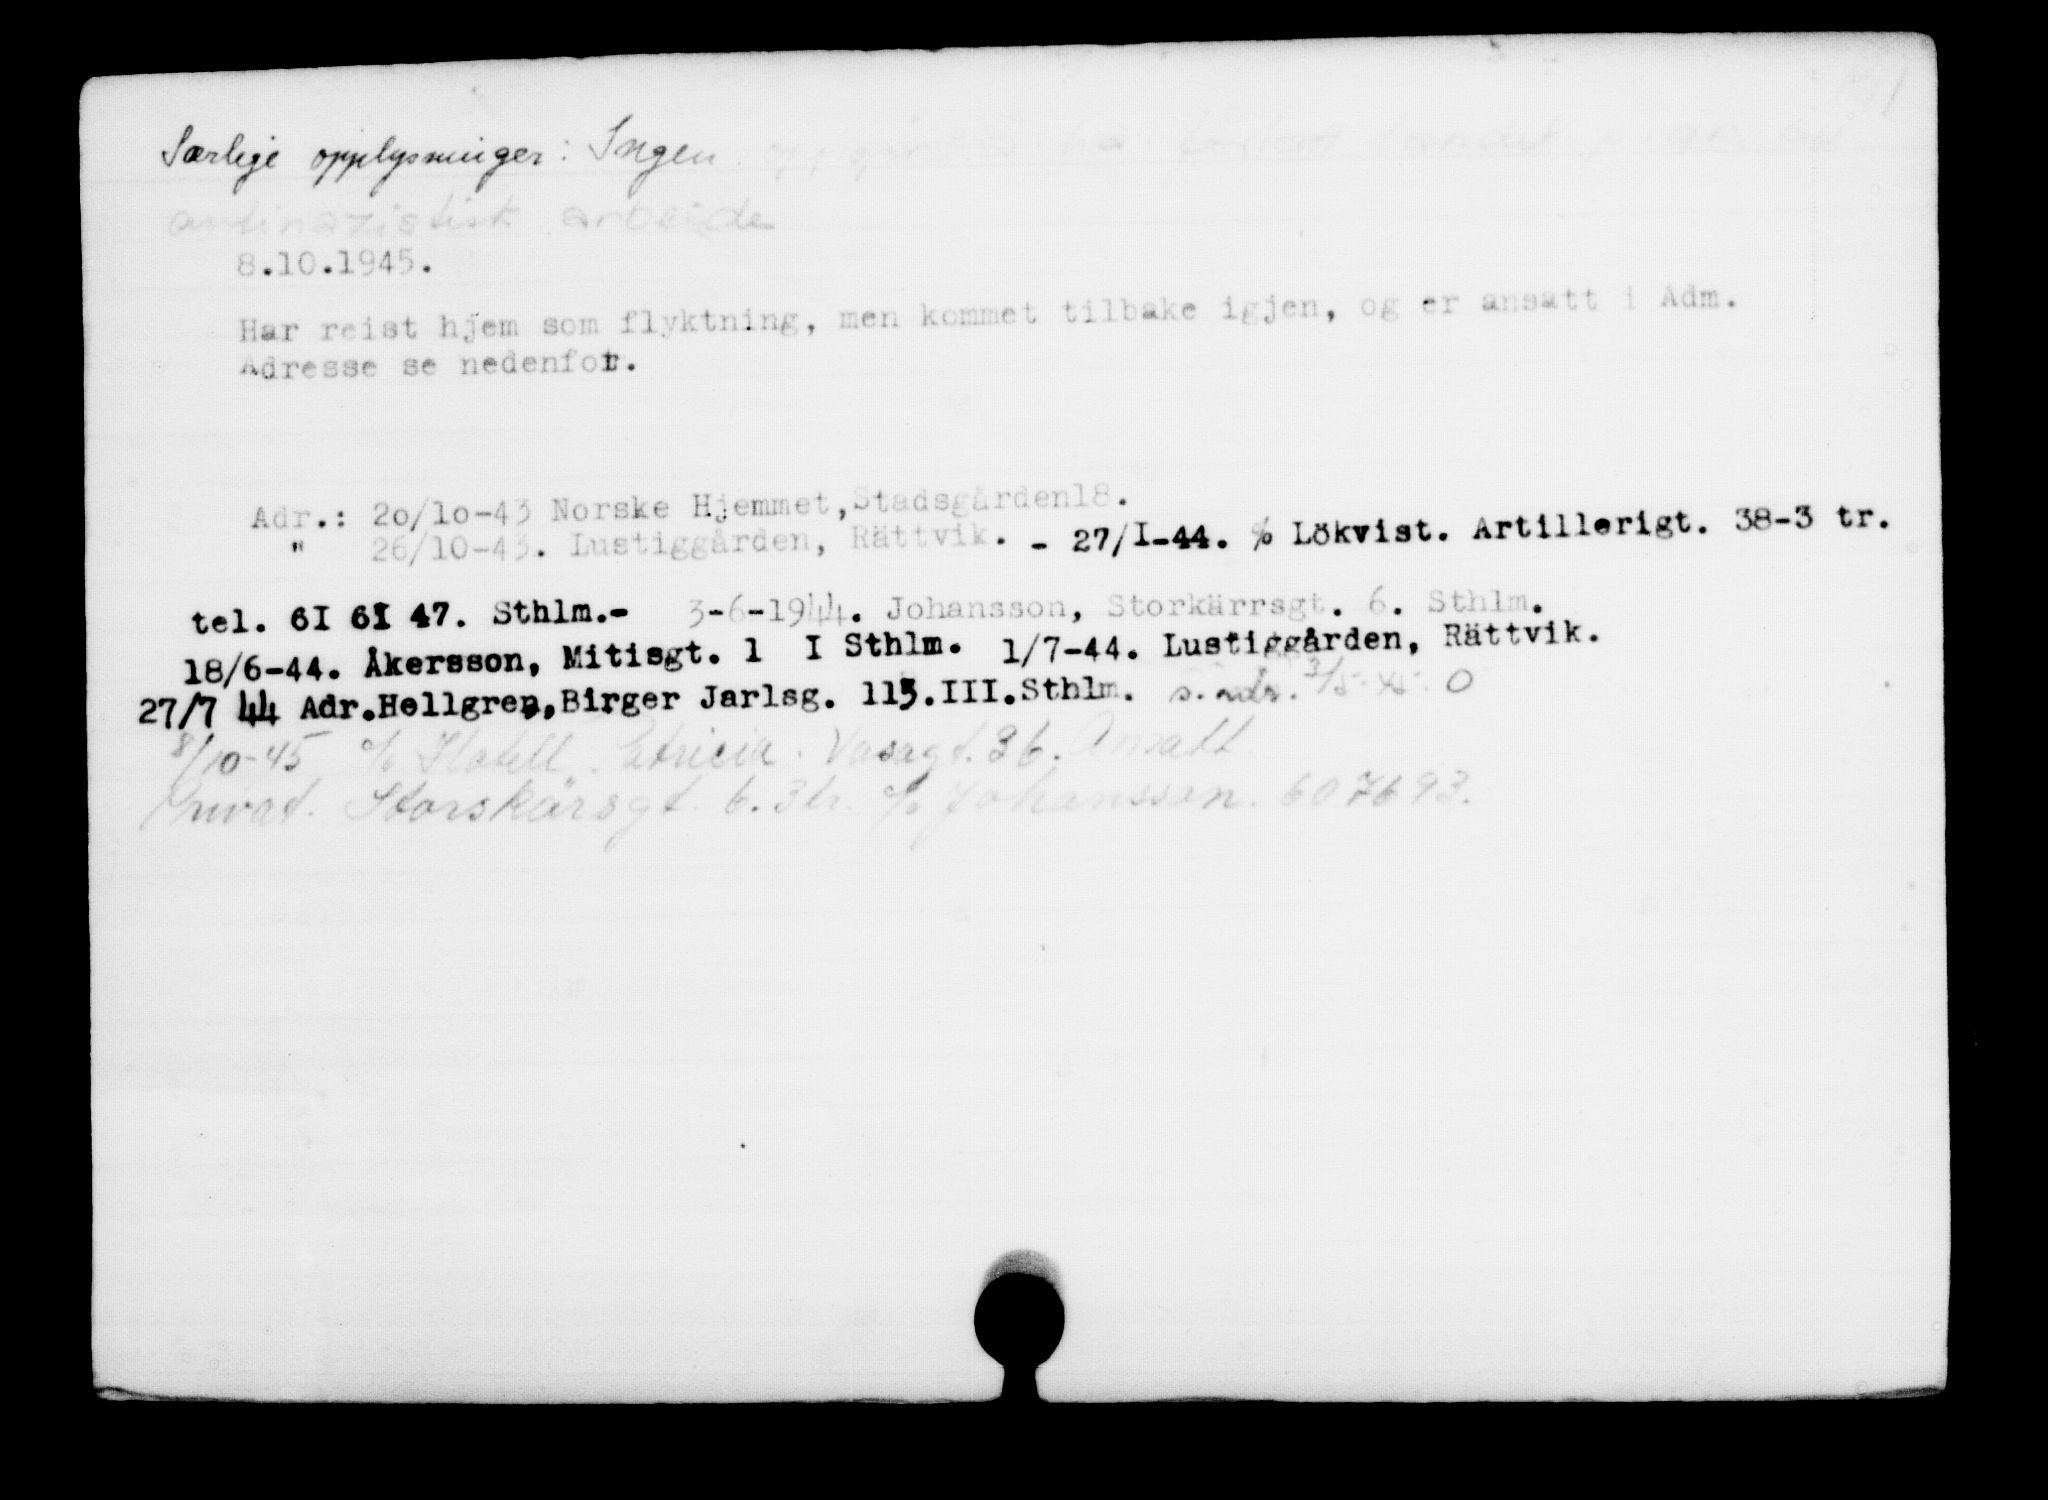 Særlige opplysninger: Ingen. ha forlatt landet p.gr. av
antinazistisk arbeide
8.10.1945.
Har reist hjem som flyktning, men kommet tilbake igjen, og er ansatt i Adm.
Adresse se nedenfor.
Adr.: 2o/1o-43 Norske Hjemmet,Stadsgården18.
" 26/10-43. Lustiggården, Rättvik. - 27/I-44. % Lökvist. Artillerigt. 38-3 tr.
tel. 6I 6I 47. Sthlm.- 3-6-1944. Johansson, Storkärrsgt. 6. Sthlm.
18/6-44. Åkersson, Mitisgt. 1 I Sthlm. 1/7-44. Lustiggården, Rättvik.
27/7 44 Adr.Hellgren,Birger Jarlsg. 115.III.Sthlm. s. adr. 3/5-45. O
8/10-45 c/o Hotell Patricia. Vasagt. 36. Ansatt
Privat. Storskärsgt. 6. 3 tr. c/o Johansson. 607693.